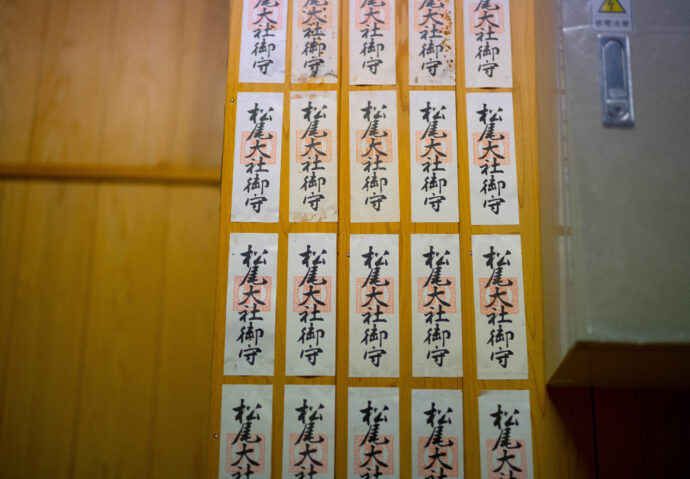 大社御守
大社御守
大社御守
大社御守
大社御守
松尾大社御守
松尾大社御守
松尾大社御守
松尾大社御守
松尾大社御守
松尾大社御守
松尾大社御守
松尾大社御守
松尾大社御守
松尾大社御守
松尾大
松尾大
松尾大
松尾大
松尾大
感電注意